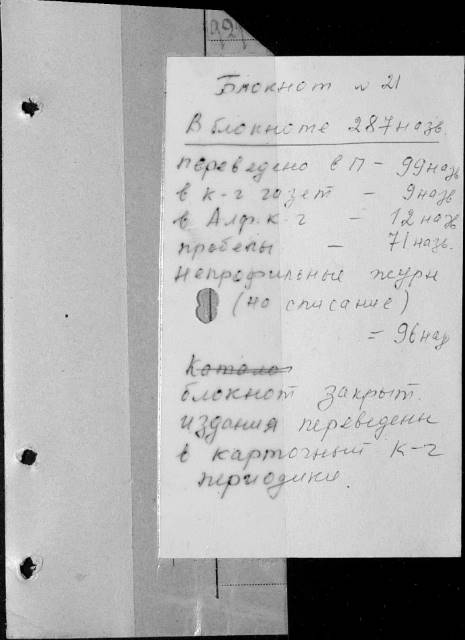 Блокнот № 21
В блокноте 287 назв.
переведено в П – 99 назв
в к-г газет – 9 назв
в Алф. к-г – 12 назв
пробелы – 71 назв.
Непрофильные журн
(на списание)
= 96 наз
Катало
блокнот закрыт.
издания переведены
в карточный к-г
периодики.